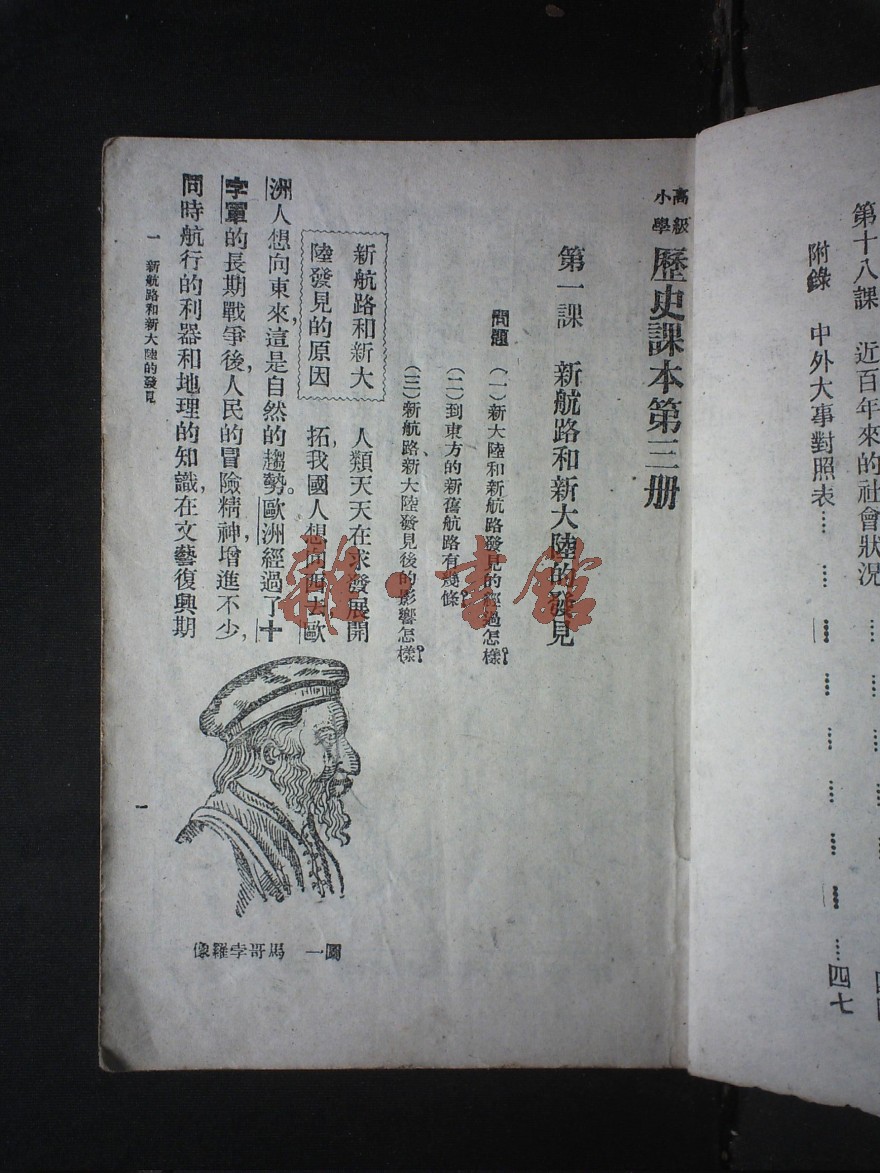 第十八課　近百年來的社會狀況……
附錄　中外大事對照表……四七
高級
小學
歷史課本第三册
第一課　新航路和新大陸的發見
問題　(一)新大陸和新航路發見的經過怎樣?
(二)到東方的新舊航路有幾條?
(三)新航路、新大陸發見後的影響怎樣?
新航路和新大
陸發見的原因
人類天天在求發展開
拓,我國人想向西去,歐
洲人想向東來,這是自然的趨勢。歐洲經過了十
字軍的長期戰爭後,人民的冒險精神,增進不少,
同時航行的利器和地理的知識,在文藝復興期
圖一　馬哥孛羅像
一　新航路和新大陸的發見
一
雜·書館